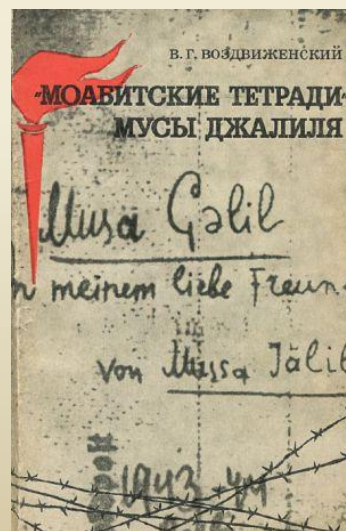 В. Г. ВОЗДВИЖЕНСКИЙ
"МОАБИТСКИЕ ТЕТРАДИ"
МУСЫ ДЖАЛИЛЯ
Musa Çəlil
n meinem liebe Freun
von Mussa Jälil
1943-44